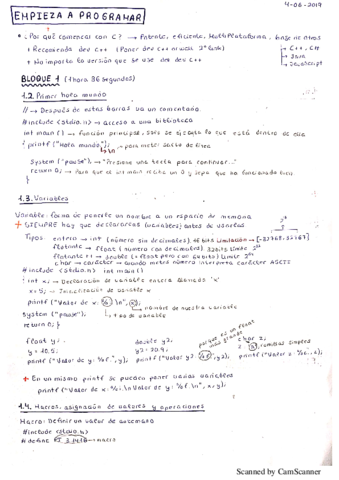 4-06-2019
EMPIEZA A PROGRAMAR
• ¿Por qué comenzar con C? → Potente, eficiente, Multiplataforma, base de otros
→ C++, C#
→ Java
→ JavaScript
+ Recomienda dev C++ (Poner dev C++
+ No importa la versión que se use del dev C++
BLOQUE 1 (1 hora 36 segundos)
1.2. Primer hola mundo
// → Después de estas barras va un comentario.
#include <stdio.h> → acceso a una biblioteca
int main () → función principal, solo se ejecuta lo que está dentro de ella
{ printf ("Hola mundo"); → para meter salto de línea
\n
System ("pause"); → "Presione una tecla para continuar..."
return 0; → Para que el int main reciba un 0 y sepa que ha funcionado bien
}
1.3. Variables
Variable: forma de ponerle un nombre a un espacio de memoria
+ SIEMPRE hay que declararlas (variables) antes de usarlas
Tipos: entero → int (número sin decimales) 16 bits Limitación → [-32768, 32767]
flotante → float (número con decimales) 32 bits Límite
flotante ++ → double (+ float pero con 64 bits) Límite
char → carácter → guarda metes número interpreta carácter ASCII
#include <stdio.h> int main()
{ int x; → Declaración de variable entera llamada 'x'
x = 5; → Inicialización de variable x
printf ("Valor de x: %i \n", x);
→ nombre de nuestra variable
System ("pause");
→ tipo de variable
return 0; }
float y;
y = 10.5;
printf ("Valor de y: %f.", y);
double y2;
y2 = 30.4;
printf ("Valor de y2: %f", y2);
char z;
z =
comillas simples
printf ("Valor de z: %c.", z);
+ En un mismo printf se pueden poner varias variables
printf ("Valor de x: %i. \n Valor de y: %f. \n", x, y);
1.4. Macros, asignación de valores y operaciones
Macro: Definir un valor de antemano
#include <stdio.h>
#define PI 3.1416 → macro
Scanned by CamScanner